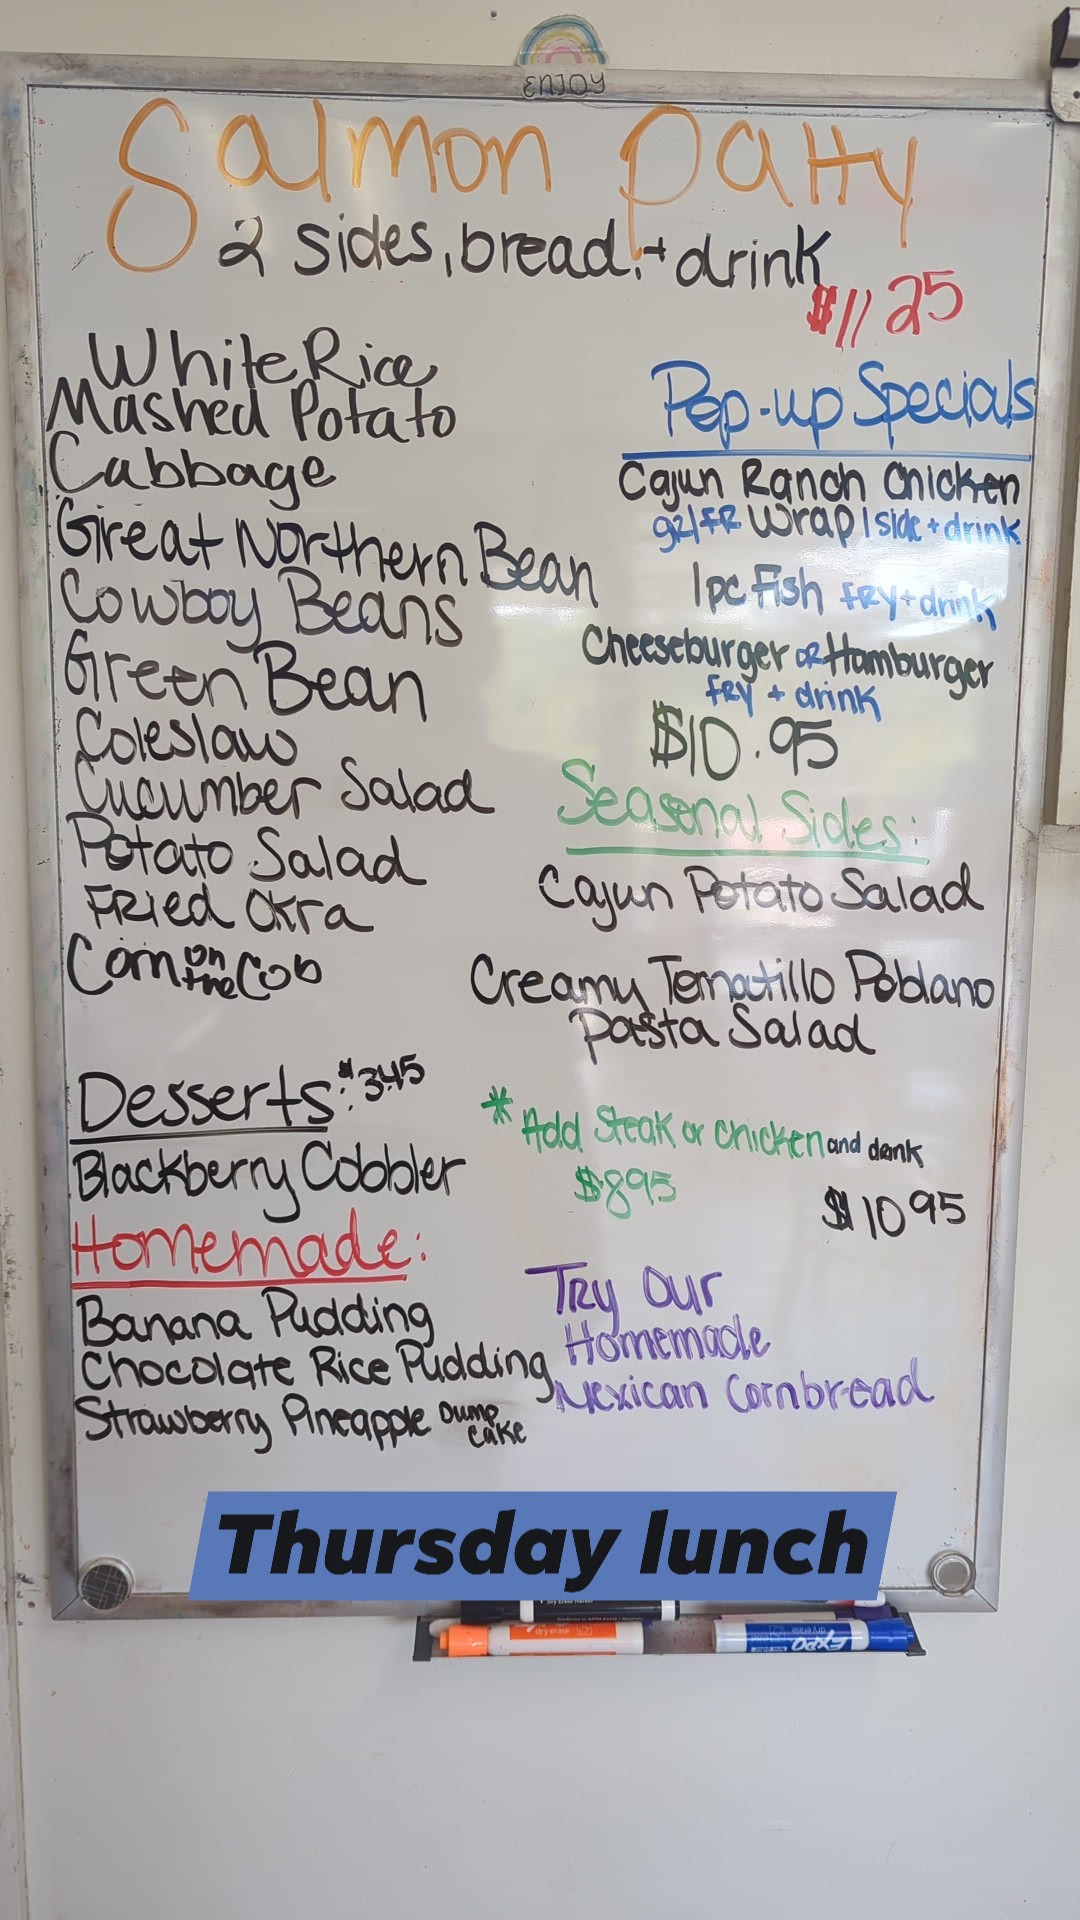 ENJOY
Salmon Patty
2 sides, bread, + drink
$11 25
White Rice
Mashed Potato
Cabbage
Great Northern Bean
Cowboy Beans
Green Bean
Coleslaw
Cucumber Salad
Potato Salad
Fried Okra
Corn on the Cob
Desserts: $3.45
Blackberry Cobbler
Homemade:
Banana Pudding
Chocolate Rice Pudding
Strawberry Pineapple Dump Cake
Pop-up Specials
Cajun Ranch Chicken
grl/FR Wrap 1 side + drink
1pc Fish fry + drink
Cheeseburger OR Hamburger
fry + drink
$10.95
Seasonal Sides:
Cajun Potato Salad
Creamy Tomatillo Poblano
Pasta Salad
* Add Steak or chicken and drink
$8.95
$10 95
Try Our
Homemade
Mexican Cornbread
Thursday lunch
dry erase
EXPO